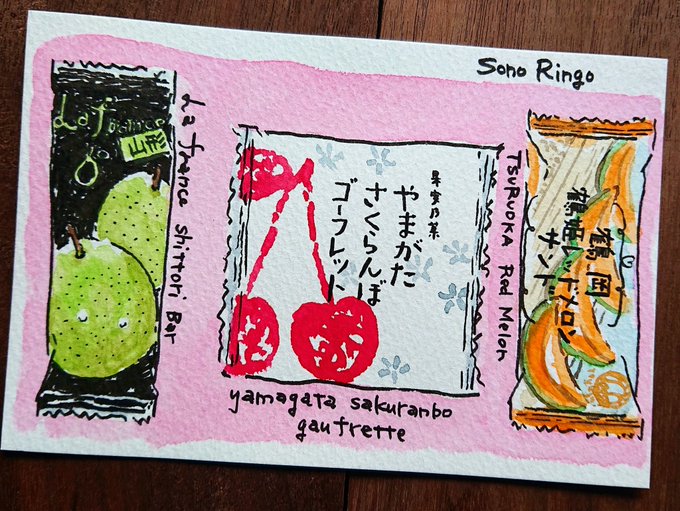 Sono Ringo
La france
山形
La france shittori Bar
果実乃菓
やまがた
さくらんぼ
ゴーフレット
yamagata sakuranbo
gaufrette
TSURUOKA Red Melon
鶴岡
鶴姫レッドメロン
サンド